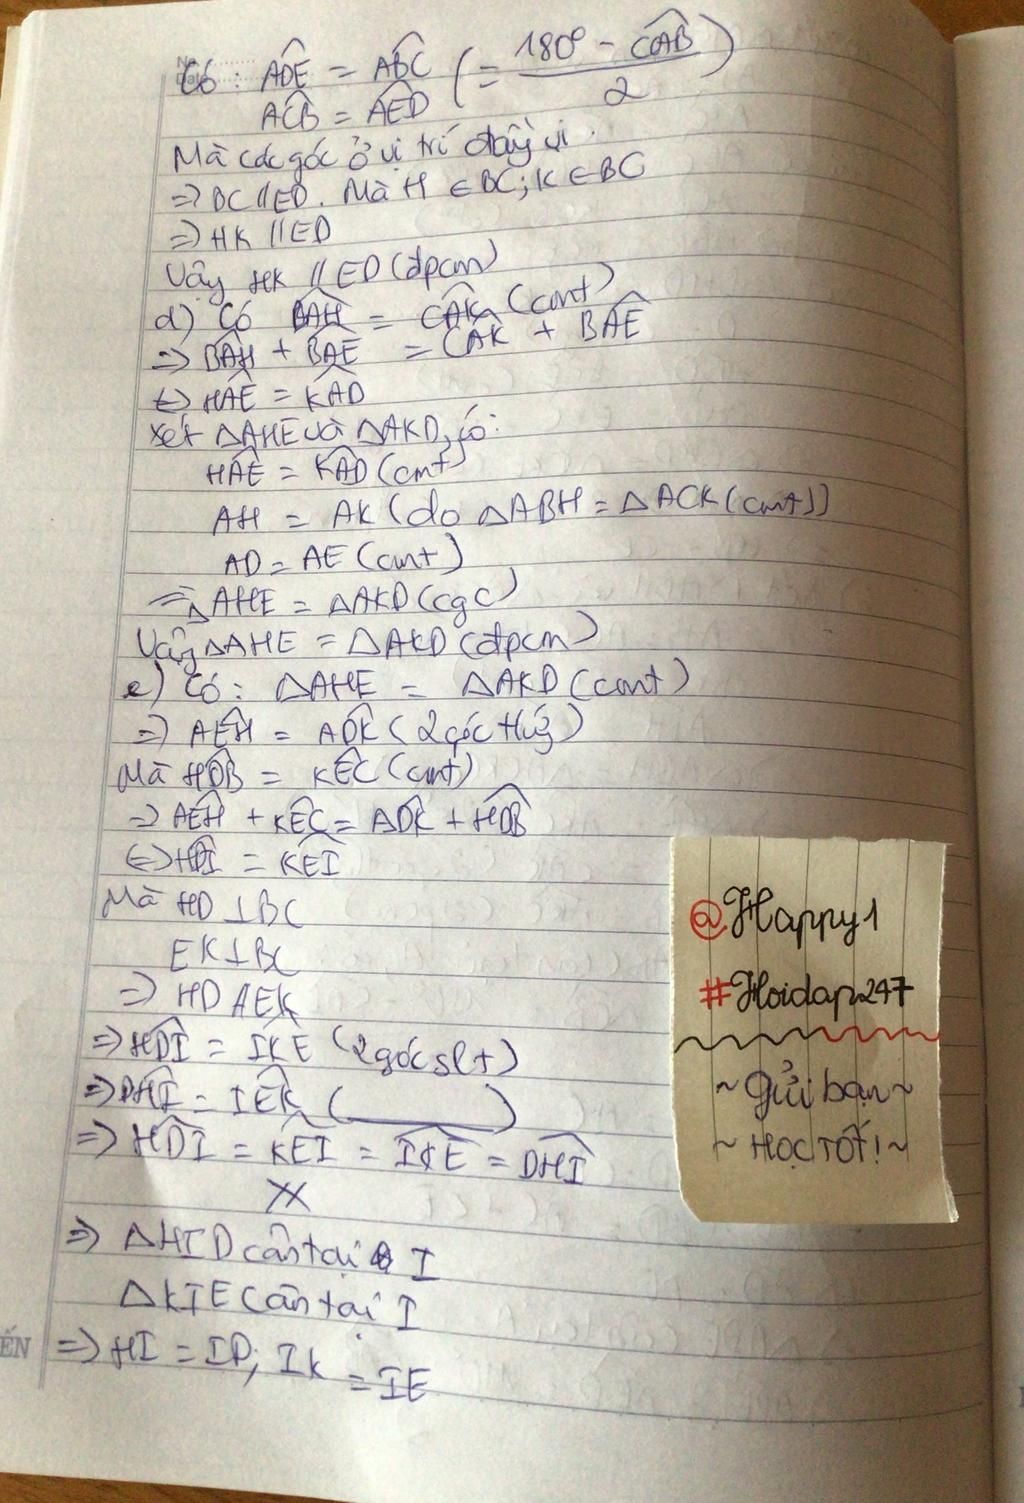 Có : ADE = ABC ( = 180° - CAB / 2 )
ACB = AED
Mà các góc ở vị trí đồng vị.
=> BC // ED. Mà H ∈ BC; K ∈ BC
=> HK // ED
Vậy HK // ED (đpcm)
d) Có BAH = CAK (cmt)
=> BAH + BAE = CAK + BAE
<=> HAE = KAD
Xét △AHE và △AKD, có:
HAE = KAD (cmt)
AH = AK (do △ABH = △ACK (cmt))
AD = AE (cmt)
=> △AHE = △AKD (cgc)
Vậy △AHE = △AKD (đpcm)
e) Có: △AHE = △AKD (cmt)
=> AEH = ADK (2 góc tứ)
Mà HDB = KEC (cmt)
=> AEH + KEC = ADK + HDB
<=> HDI = KEI
Mà HD ⊥ BC
EK ⊥ BC
=> HD // EK
=> HDI = IKE (2 góc slt)
=> DHI = IEK ( )
=> HDI = KEI = IKE = DHI
=> △HID cân tại I
△KIE cân tại I
=> HI = ID; IK = IE
ẾN
@Happy1
#Hoidap247
~ Gửi bạn ~
~ HỌC TỐT! ~